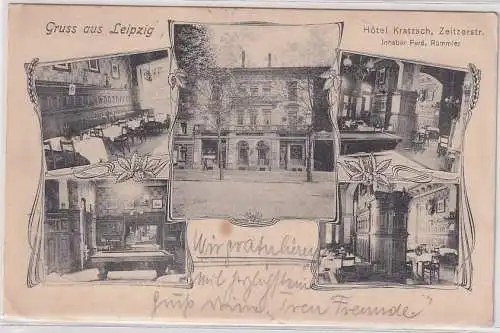 Gruss aus Leipzig
Hôtel Kratzsch, Zeitzerstr.
Inhaber Ferd. Rümmler
Wir gratulieren
mit
Gruß Freunde